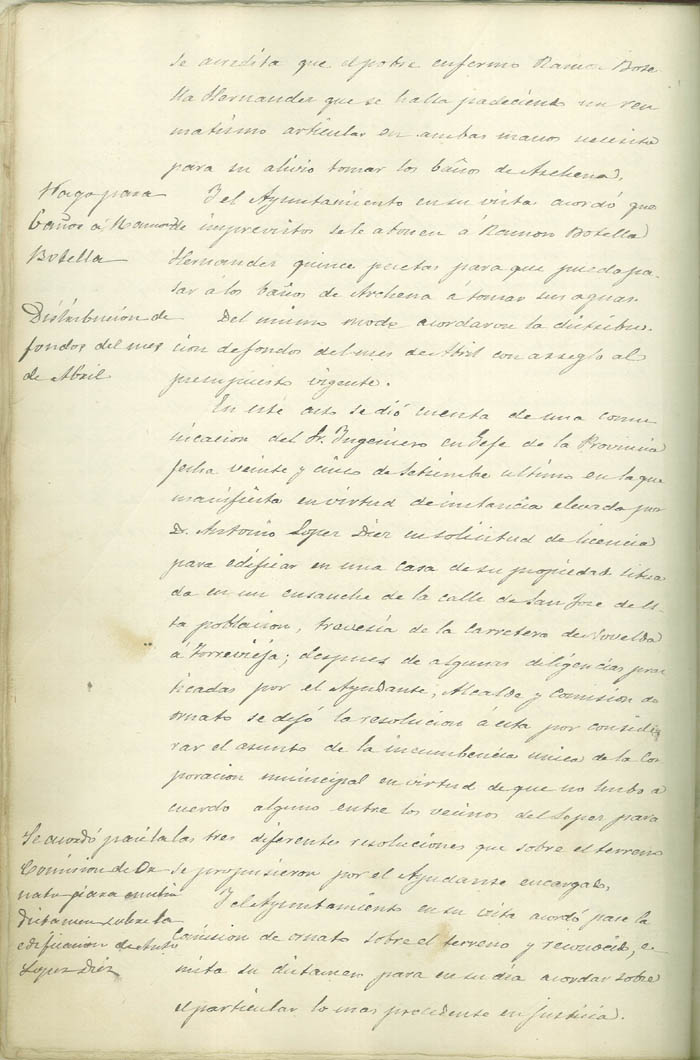 se acredita que el pobre enfermo Ramon Bote
lla Hernandez que se halla padeciendo un reu
matismo articular en ambas manos necesita
para su alivio tomar los baños de Archena.
Pago para
baños á Ramon
Botella
Y el Ayuntamiento en su vista acordó que
de imprevistos se le abonen á Ramon Botella
Hernandez quince pesetas para que pueda pa-
sar á los baños de Archena á tomar sus aguas.
Distribucion de
fondos del mes
de Abril
Del mismo modo acordaron la distribu-
cion de fondos del mes de Abril con arreglo al
presupuesto vigente.
En este acto se dió cuenta de una comu
nicacion del Sr. Ingeniero en Gefe de la Provincia
fecha veinte y cinco de Setiembre ultimo en la que
manifiesta en virtud de instancia elevada por
D. Antonio Lopez Diez en solicitud de licencia
para edificar en una casa de su propiedad situa
da en un ensanche de la calle de San Jose de es
ta poblacion, travesía de la carretera de Novelda
á Torrevieja; despues de algunas diligencias prac
ticadas por el Ayudante, Alcalde y Comision de
ornato se dejó la resolucion á esta por conside
rar el asunto de la incumbencia unica de la Cor
poracion municipal en virtud de que no hubo a
cuerdo alguno entre los vecinos del Lopez para
las tres diferentes resoluciones que sobre el terreno
se propusieron por el Ayudante encargado.
Se acordó pase á la
Comision de Or
nato para emitir
dictamen sobre la
edificacion de Anto
Lopez Diez
Y el Ayuntamiento en su vista acordó pase la
Comision de ornato sobre el terreno y reconocido, e-
mita su dictamen para en su dia acordar sobre
el particular lo mas procedente en justicia.